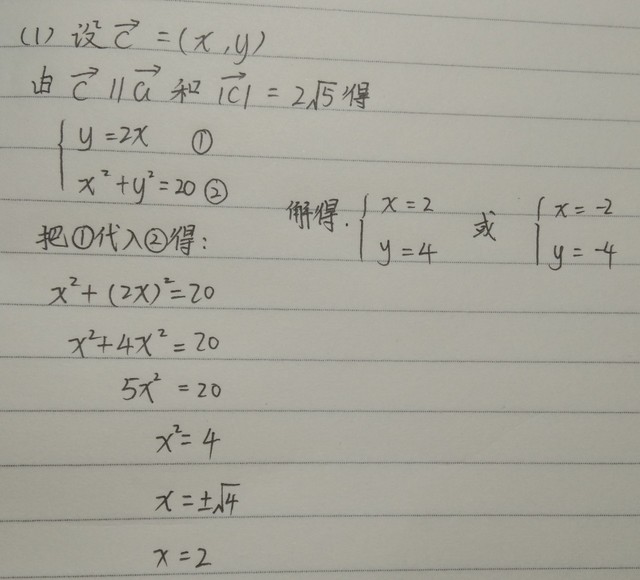 (1) 设 c⃗ = (x, y)
由 c⃗ // a⃗ 和 |c⃗| = 2√5 得
{ y = 2x ①
x² + y² = 20 ②
把①代入②得:
x² + (2x)² = 20
x² + 4x² = 20
5x² = 20
x² = 4
x = ±√4
x = 2
解得. { x = 2 或 { x = -2
y = 4 y = -4